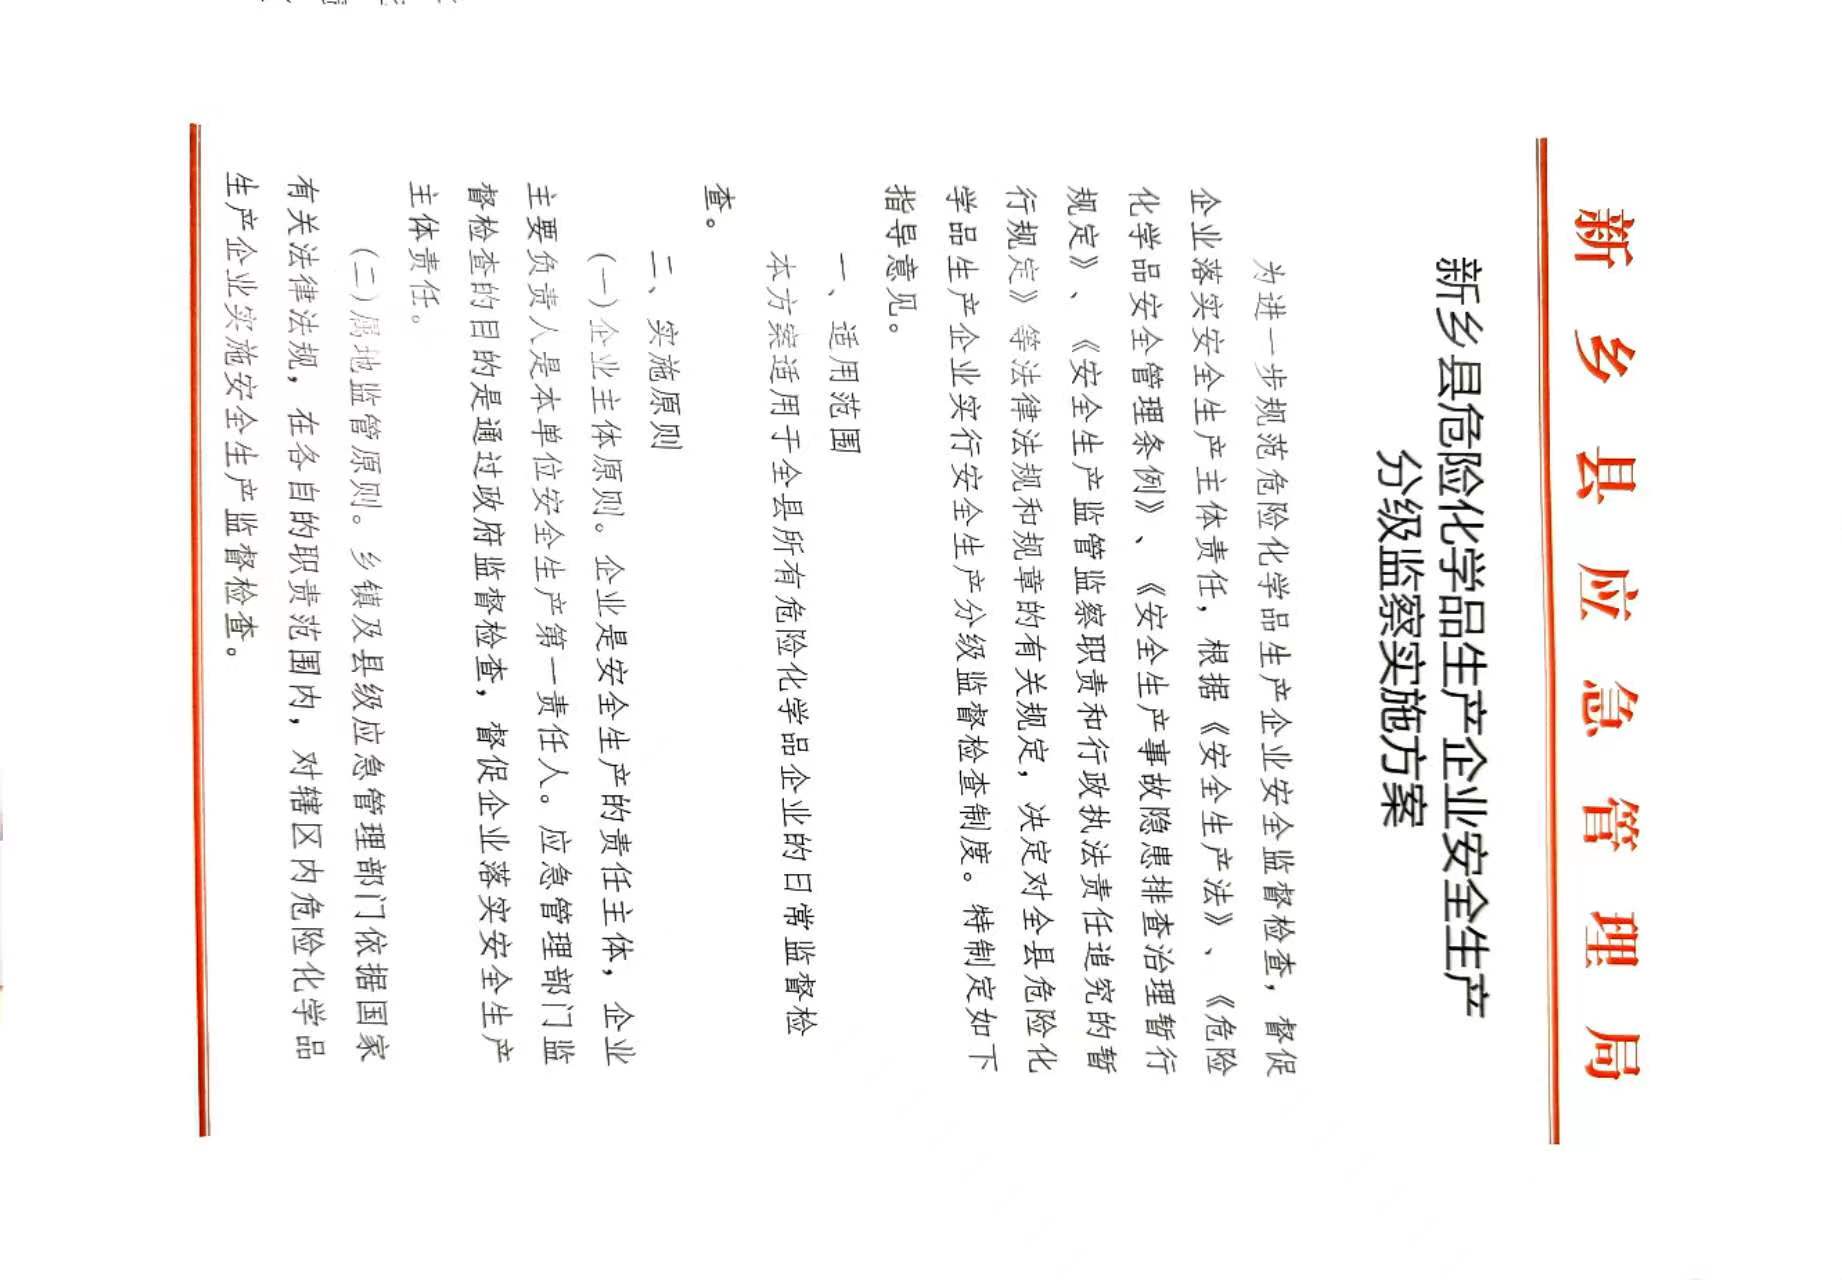 新乡县应急管理局
新乡县危险化学品生产企业安全生产
分级监察实施方案
为进一步规范危险化学品生产企业安全监督检查，督促
企业落实安全生产主体责任，根据《安全生产法》、《危险
化学品安全管理条例》、《安全生产事故隐患排查治理暂行
规定》、《安全生产监管监察职责和行政执法责任追究的暂
行规定》等法律法规和规章的有关规定，决定对全县危险化
学品生产企业实行安全生产分级监督检查制度。特制定如下
指导意见。
一、适用范围
本方案适用于全县所有危险化学品企业的日常监督检
查。
二、实施原则
(一)企业主体原则。企业是安全生产的责任主体，企业
主要负责人是本单位安全生产第一责任人。应急管理部门监
督检查的目的是通过政府监督检查，督促企业落实安全生产
主体责任。
(二)属地监管原则。乡镇及县级应急管理部门依据国家
有关法律法规，在各自的职责范围内，对辖区内危险化学品
生产企业实施安全生产监督检查。